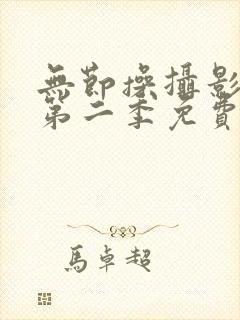 無節操攝影
第二季免費
馬卓超